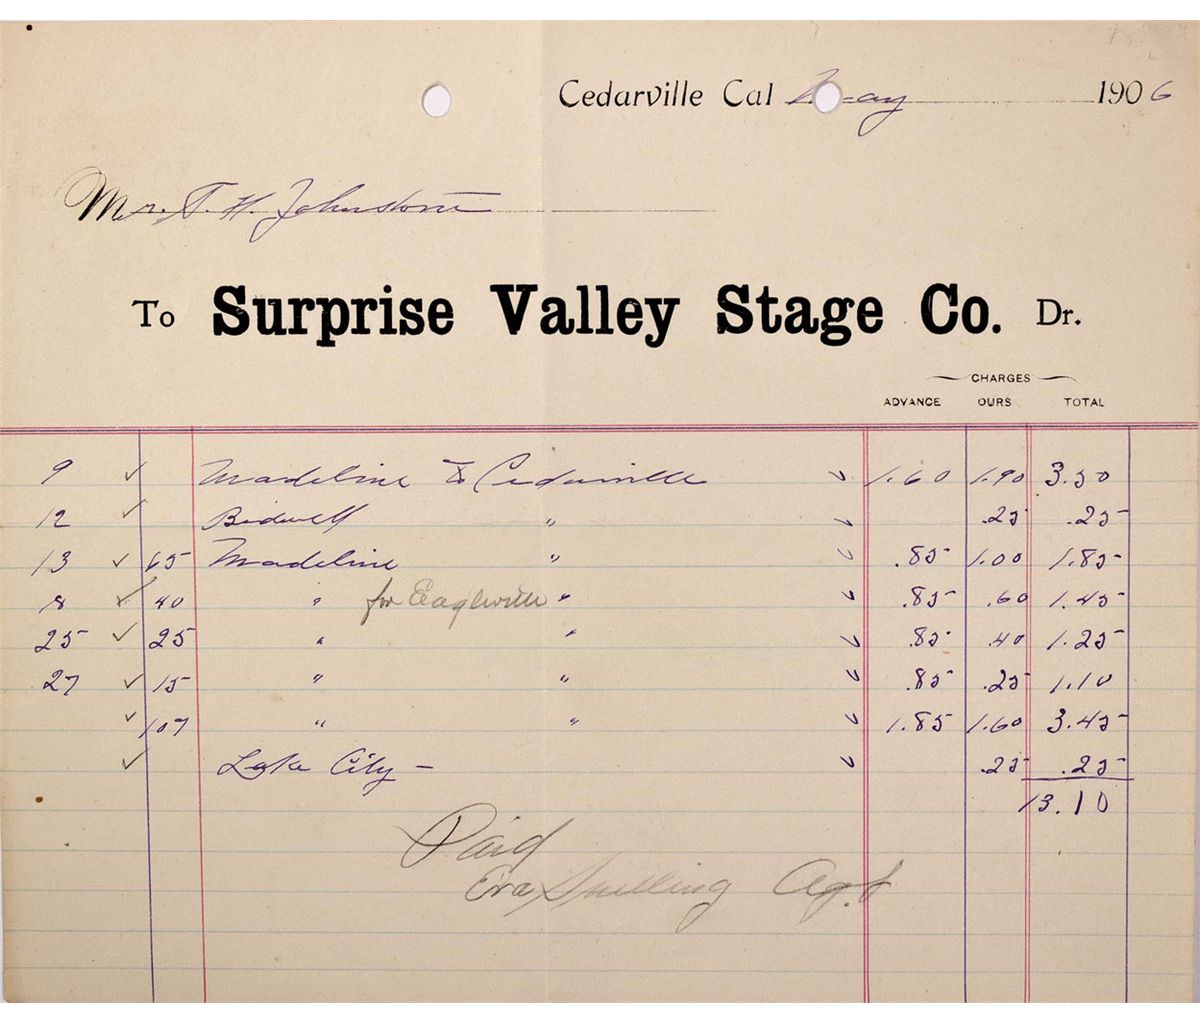 Cedarville Cal May 1906
Mr. T. H. Johnstone
To Surprise Valley Stage Co. Dr.
CHARGES
ADVANCE OURS TOTAL
9 ✓ Madeline To Cedarville ✓ 1.60 1.90 3.50
12 ✓ Bidwell " ✓ .25 .25
13 ✓ 65 Madeline " ✓ .85 1.00 1.85
18 ✓ 40 " for Eagleville " ✓ .85 .60 1.45
25 ✓ 25 " " ✓ .85 .40 1.25
27 ✓ 15 " " ✓ .85 .25 1.10
✓ 107 " " ✓ 1.85 1.60 3.45
✓ Lake City – ✓ .25 .25
13.10
Paid
Eva Snelling Agt